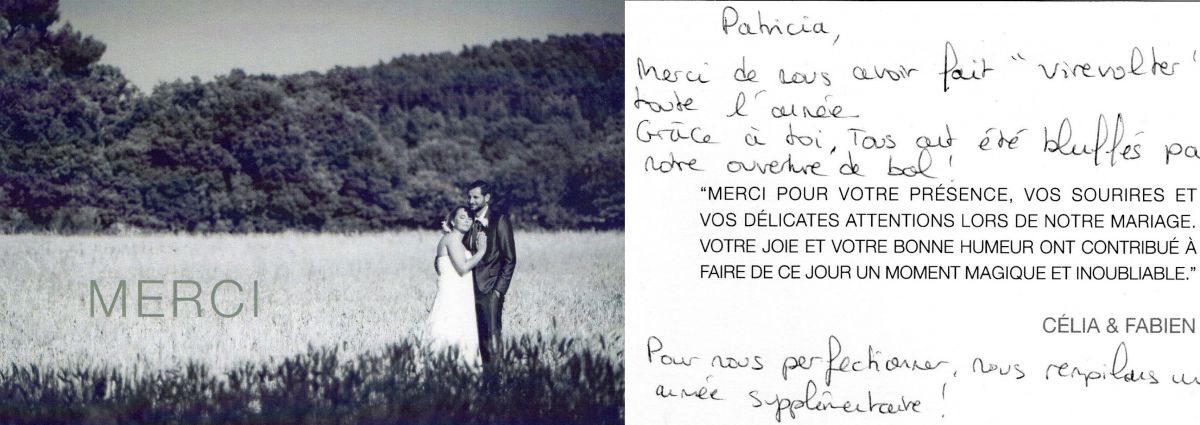 MERCI
Patricia,
Merci de nous avoir fait "virevolter"
toute l'année
Grâce à toi, Tous ont été bluffés pa
notre ouverture de bal !
"MERCI POUR VOTRE PRÉSENCE, VOS SOURIRES ET
VOS DÉLICATES ATTENTIONS LORS DE NOTRE MARIAGE.
VOTRE JOIE ET VOTRE BONNE HUMEUR ONT CONTRIBUÉ À
FAIRE DE CE JOUR UN MOMENT MAGIQUE ET INOUBLIABLE."
CÉLIA & FABIEN
Pour nous perfectionner, nous rempilons un
année supplémentaire !